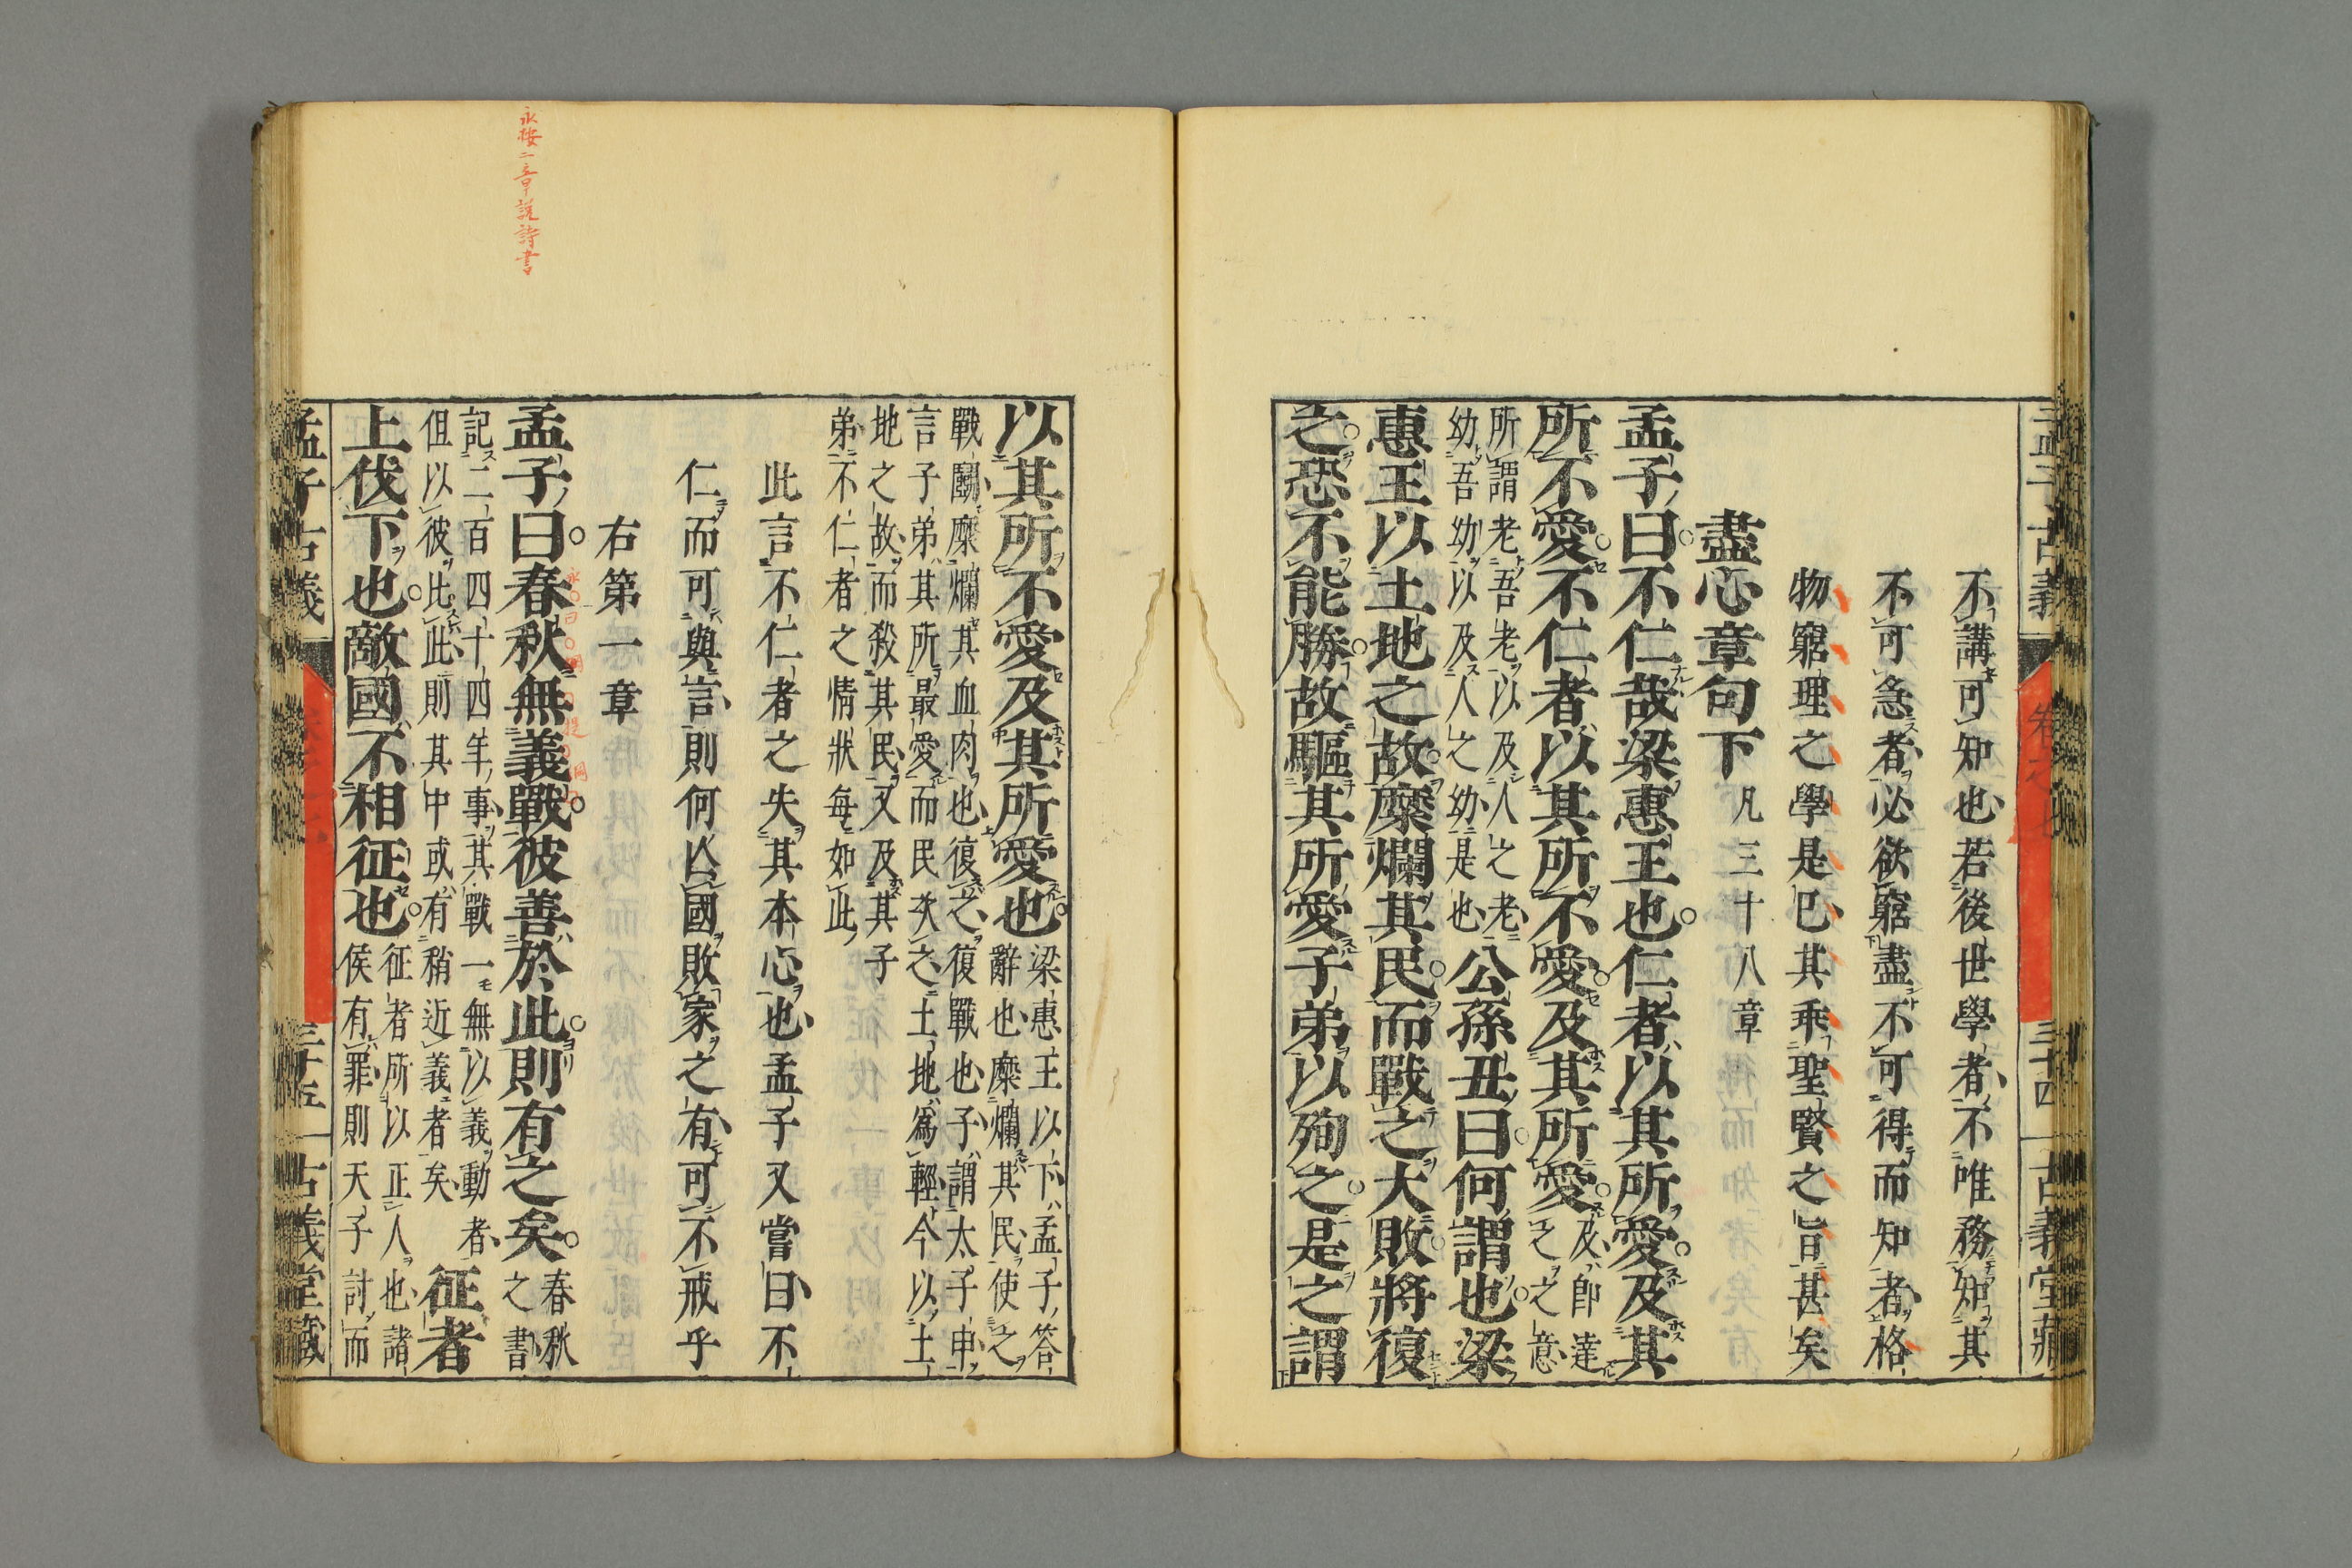 不講可知也若後世學者不唯務知其
不可急者必欲窮盡不可得而知者格
物窮理之學是已其乖聖賢之旨甚矣
盡心章句下 凡三十八章
孟子曰不仁哉梁惠王也仁者以其所愛及其
所不愛不仁者以其所不愛及其所愛 及即達之之意
所謂老吾老以及人之老
幼吾幼以及人之幼是也 公孫丑曰何謂也梁
惠王以土地之故糜爛其民而戰之大敗將復
之恐不能勝故驅其所愛子弟以殉之是之謂
以其所不愛及其所愛也 梁惠王以下孟子答
辭也糜爛其民使之
戰鬭糜爛其血肉也復之復戰也子謂太子申
言子弟其所最愛而民次之土地爲輕今以土
地之故而殺其民又及其子
弟不仁者之情狀每如此
此言不仁者之失其本心也孟子又嘗曰不
仁而可與言則何亾國敗家之有可不戒乎
右第一章
孟子曰春秋無義戰彼善於此則有之矣 春秋之書
記二百四十四年事其戰一無以義動者
但以彼比此則其中或有稍近義者矣 征者
上伐下也敵國不相征也 征者所以正人也諸
侯有罪則天子討而
孟子古義
三十四
古義堂藏
孟子古義
三十五
古義堂藏
永按二章説詩書